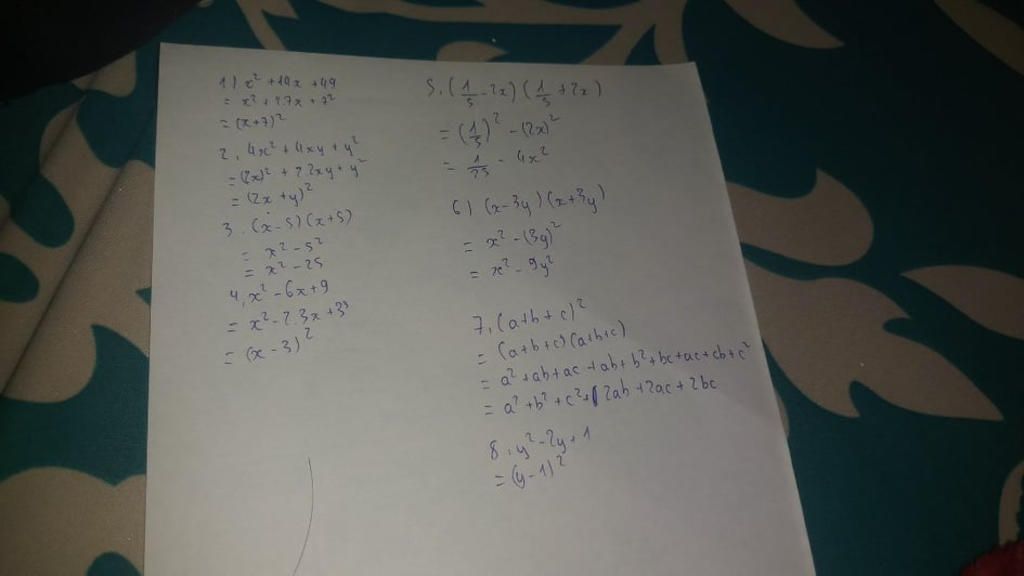 1) x² + 14x + 49
= x² + 2.7x + 7²
= (x+7)²
2, 4x² + 4xy + y²
= (2x)² + 2.2xy + y²
= (2x + y)²
3. (x - 5)(x + 5)
= x² - 5²
= x² - 25
4, x² - 6x + 9
= x² - 2.3x + 3²
= (x - 3)²
5. (1/5 - 2x)(1/5 + 2x)
= (1/5)² - (2x)²
= 1/25 - 4x²
6) (x - 3y)(x + 3y)
= x² - (3y)²
= x² - 9y²
7, (a + b + c)²
= (a + b + c)(a + b + c)
= a² + ab + ac + ab + b² + bc + ac + cb + c²
= a² + b² + c² + 2ab + 2ac + 2bc
8, y² - 2y + 1
= (y - 1)²